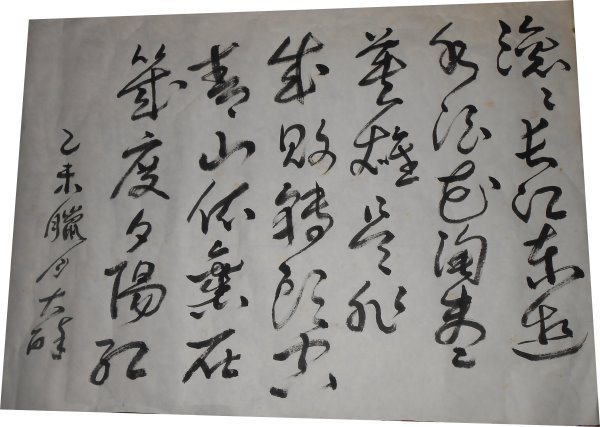 滚〻长江东逝
水浪花淘尽
英雄是非
成败转头空
青山依旧在
几度夕陽红
乙未臘月大